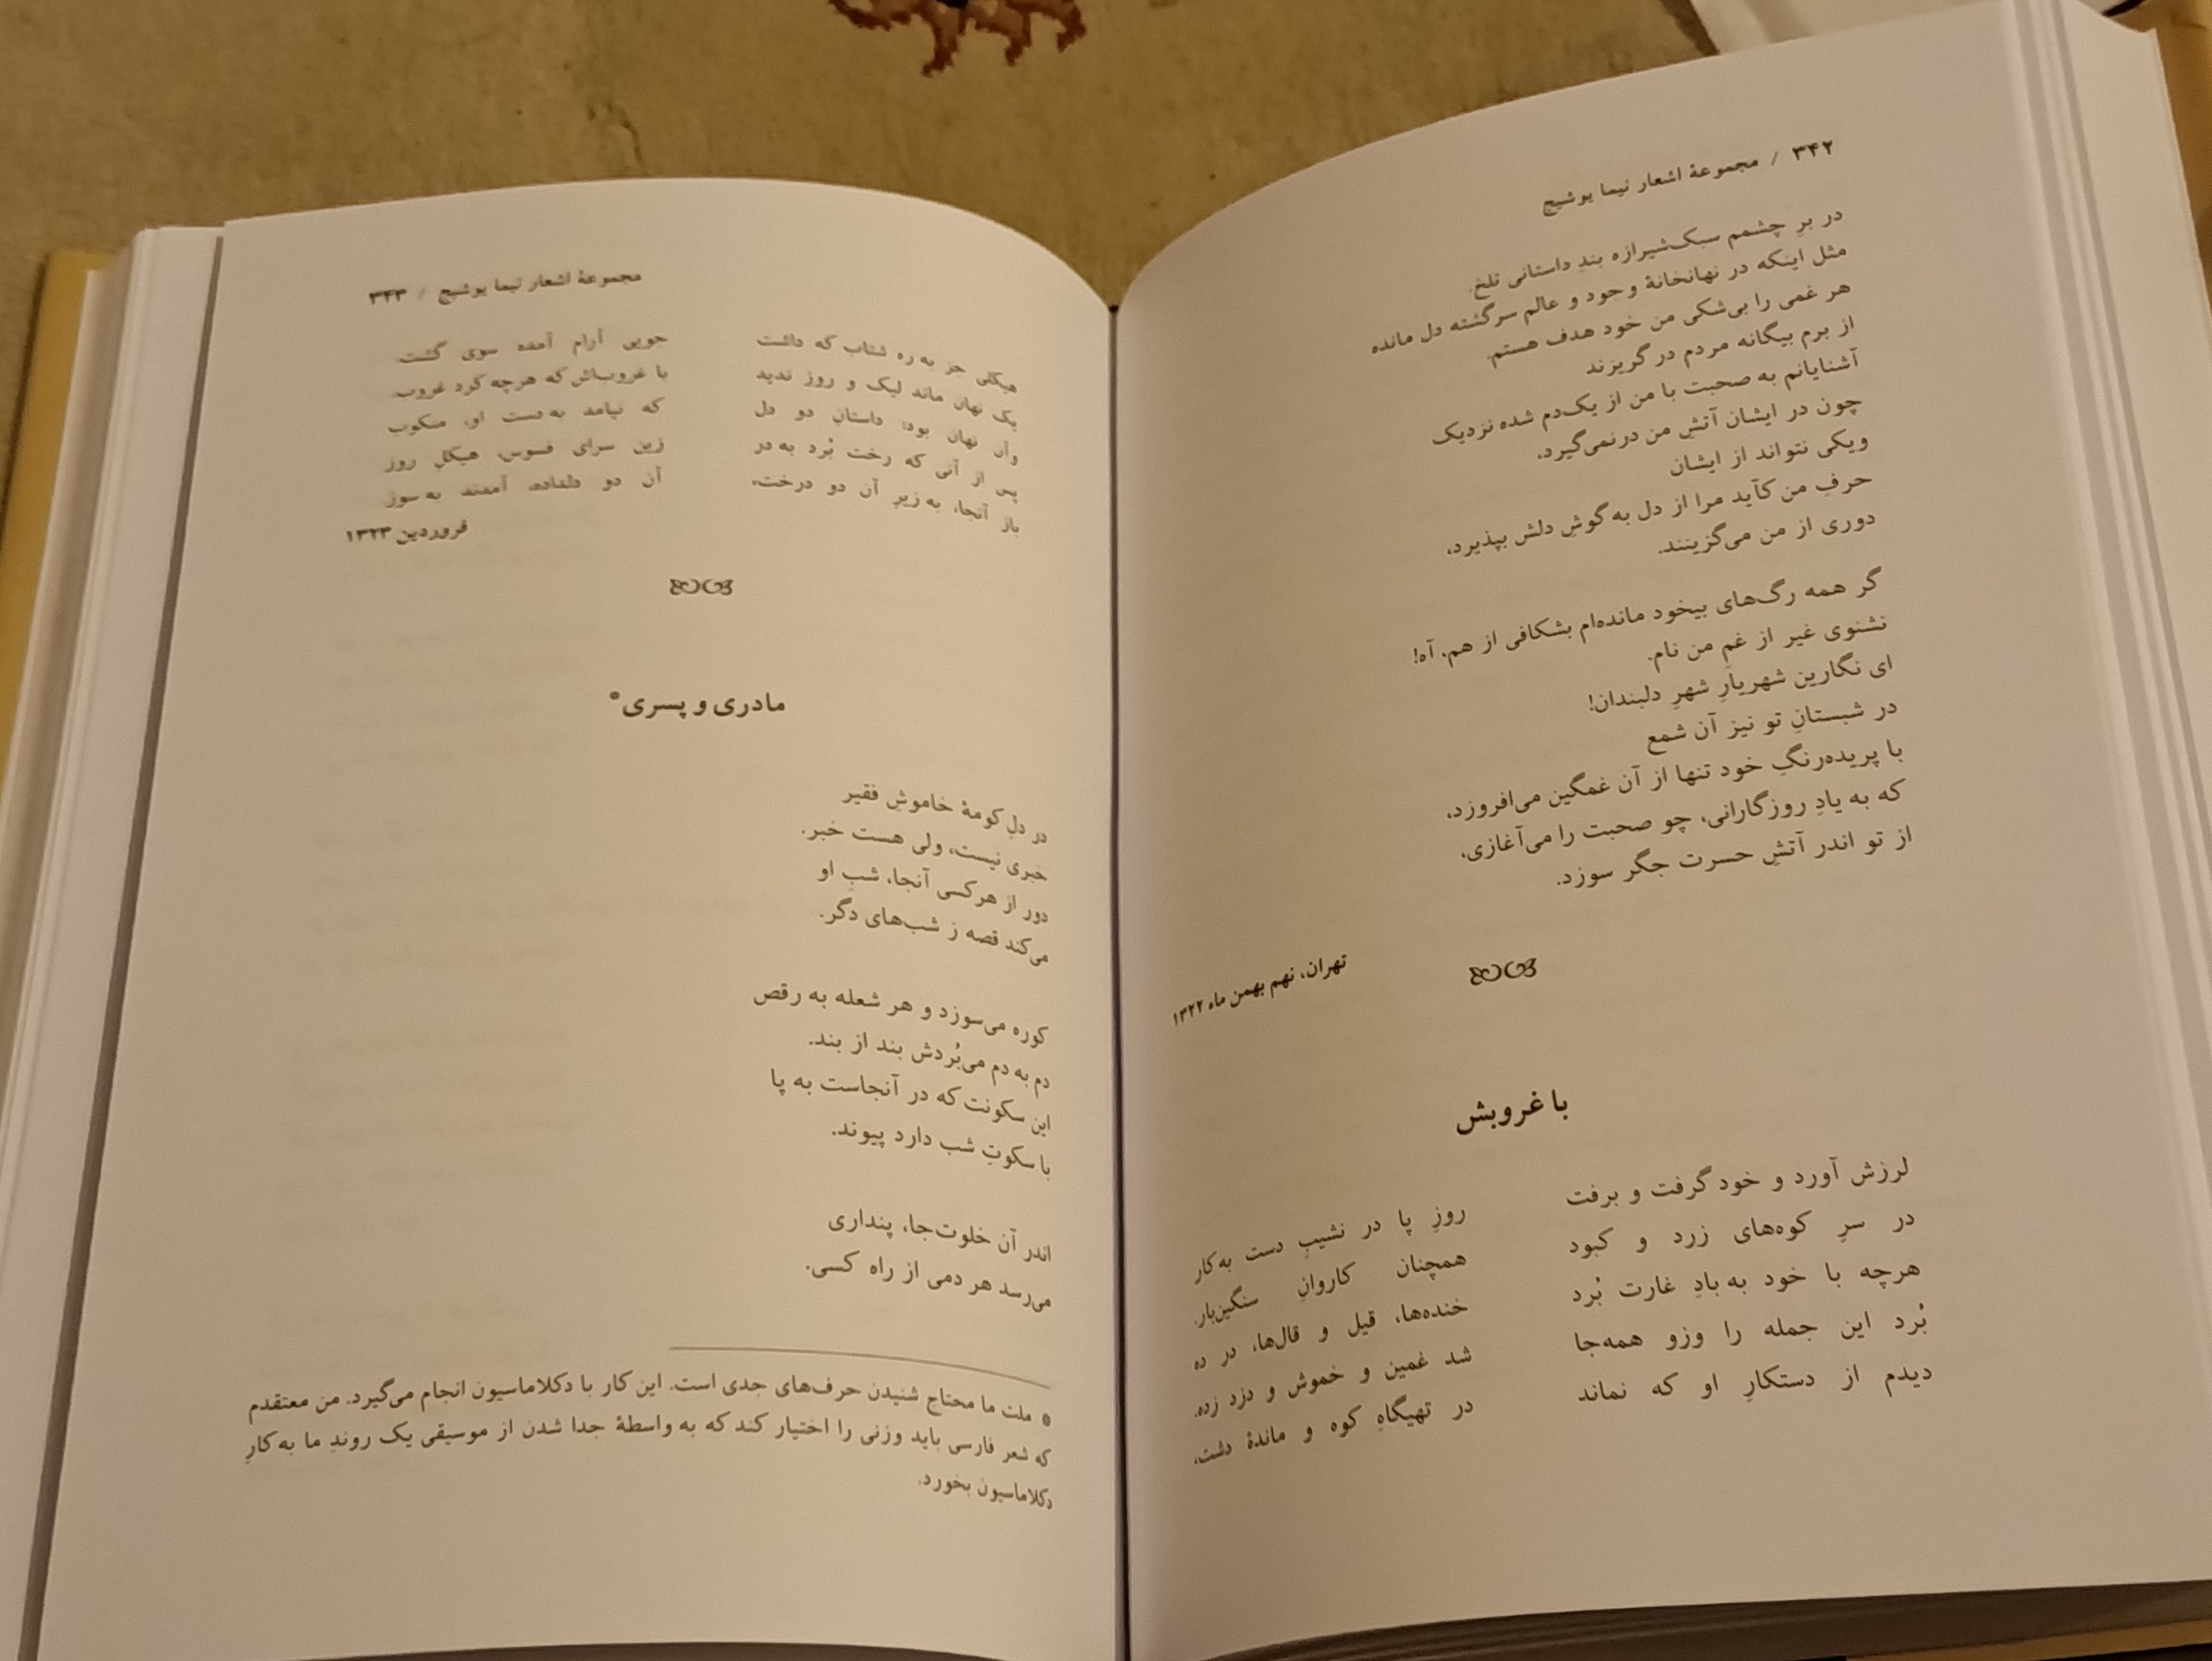 ۳۴۲ / مجموعهٔ اشعار نیما یوشیج
در برِ چشمم سبک‌شیرازه بندِ داستانی تلخ.
مثل اینکه در نهانخانهٔ وجود و عالم سرگشته دل مانده
هر غمی را بی‌شکی من خود هدف هستم.
از برم بیگانه مردم در گریزند
آشنایانم به صحبت با من از یک‌دم شده نزدیک
چون در ایشان آتشِ من درنمی‌گیرد،
ویکی نتواند از ایشان
حرفِ من کآید مرا از دل به گوشِ دلش بپذیرد،
دوری از من می‌گزینند.
گر همه رگ‌های بیخود مانده‌ام بشکافی از هم، آه!
نشنوی غیر از غمِ من نام.
ای نگارین شهریارِ شهرِ دلبندان!
در شبستانِ تو نیز آن شمع
با پریده‌رنگِ خود تنها از آن غمگین می‌افروزد،
که به یادِ روزگارانی، چو صحبت را می‌آغازی،
از تو اندر آتشِ حسرت جگر سوزد.
تهران، نهم بهمن ماه ۱۳۲۲
با غروبش
لرزش آورد و خود گرفت و برفت روزِ پا در نشیبِ دست به‌کار
در سرِ کوه‌های زرد و کبود همچنان کاروانِ سنگین‌بار.
هرچه با خود به بادِ غارت بُرد خنده‌ها، قیل و قال‌ها، در ده
بُرد این جمله را وزو همه‌جا شد غمین و خموش و دزد زده.
دیدم از دستکارِ او که نماند در تهیگاهِ کوه و ماندهٔ دشت،
مجموعهٔ اشعار نیما یوشیج / ۳۴۳
هیکلی جز به ره شتاب که داشت جویی آرام آمده سوی گشت.
یک نهان ماند لیک و روز ندید با غروب‌اش که هرچه کرد غروب.
وآن نهان بود: داستانِ دو دل که نیامد به‌دست او، منکوب
پس از آنی که رخت بُرد به در زین سرای فسوس، هیکلِ روز
باز آنجا، به زیرِ آن دو درخت، آن دو دلداده، آمدند به سوز.
فروردین ۱۳۲۳
مادری و پسری*
در دلِ کومهٔ خاموشِ فقیر
خبری نیست، ولی هست خبر.
دور از هرکسی آنجا، شبِ او
می‌کند قصه ز شب‌های دگر.
کوره می‌سوزد و هر شعله به رقص
دم به دم می‌بُردش بند از بند.
این سکونت که در آنجاست به پا
با سکوتِ شب دارد پیوند.
اندر آن خلوت‌جا، پنداری
می‌رسد هر دمی از راه کسی.
* ملت ما محتاج شنیدن حرف‌های جدی است. این کار با دکلاماسیون انجام می‌گیرد. من معتقدم
که شعر فارسی باید وزنی را اختیار کند که به واسطهٔ جدا شدن از موسیقی یک روندِ ما به‌کارِ
دکلاماسیون بخورد.